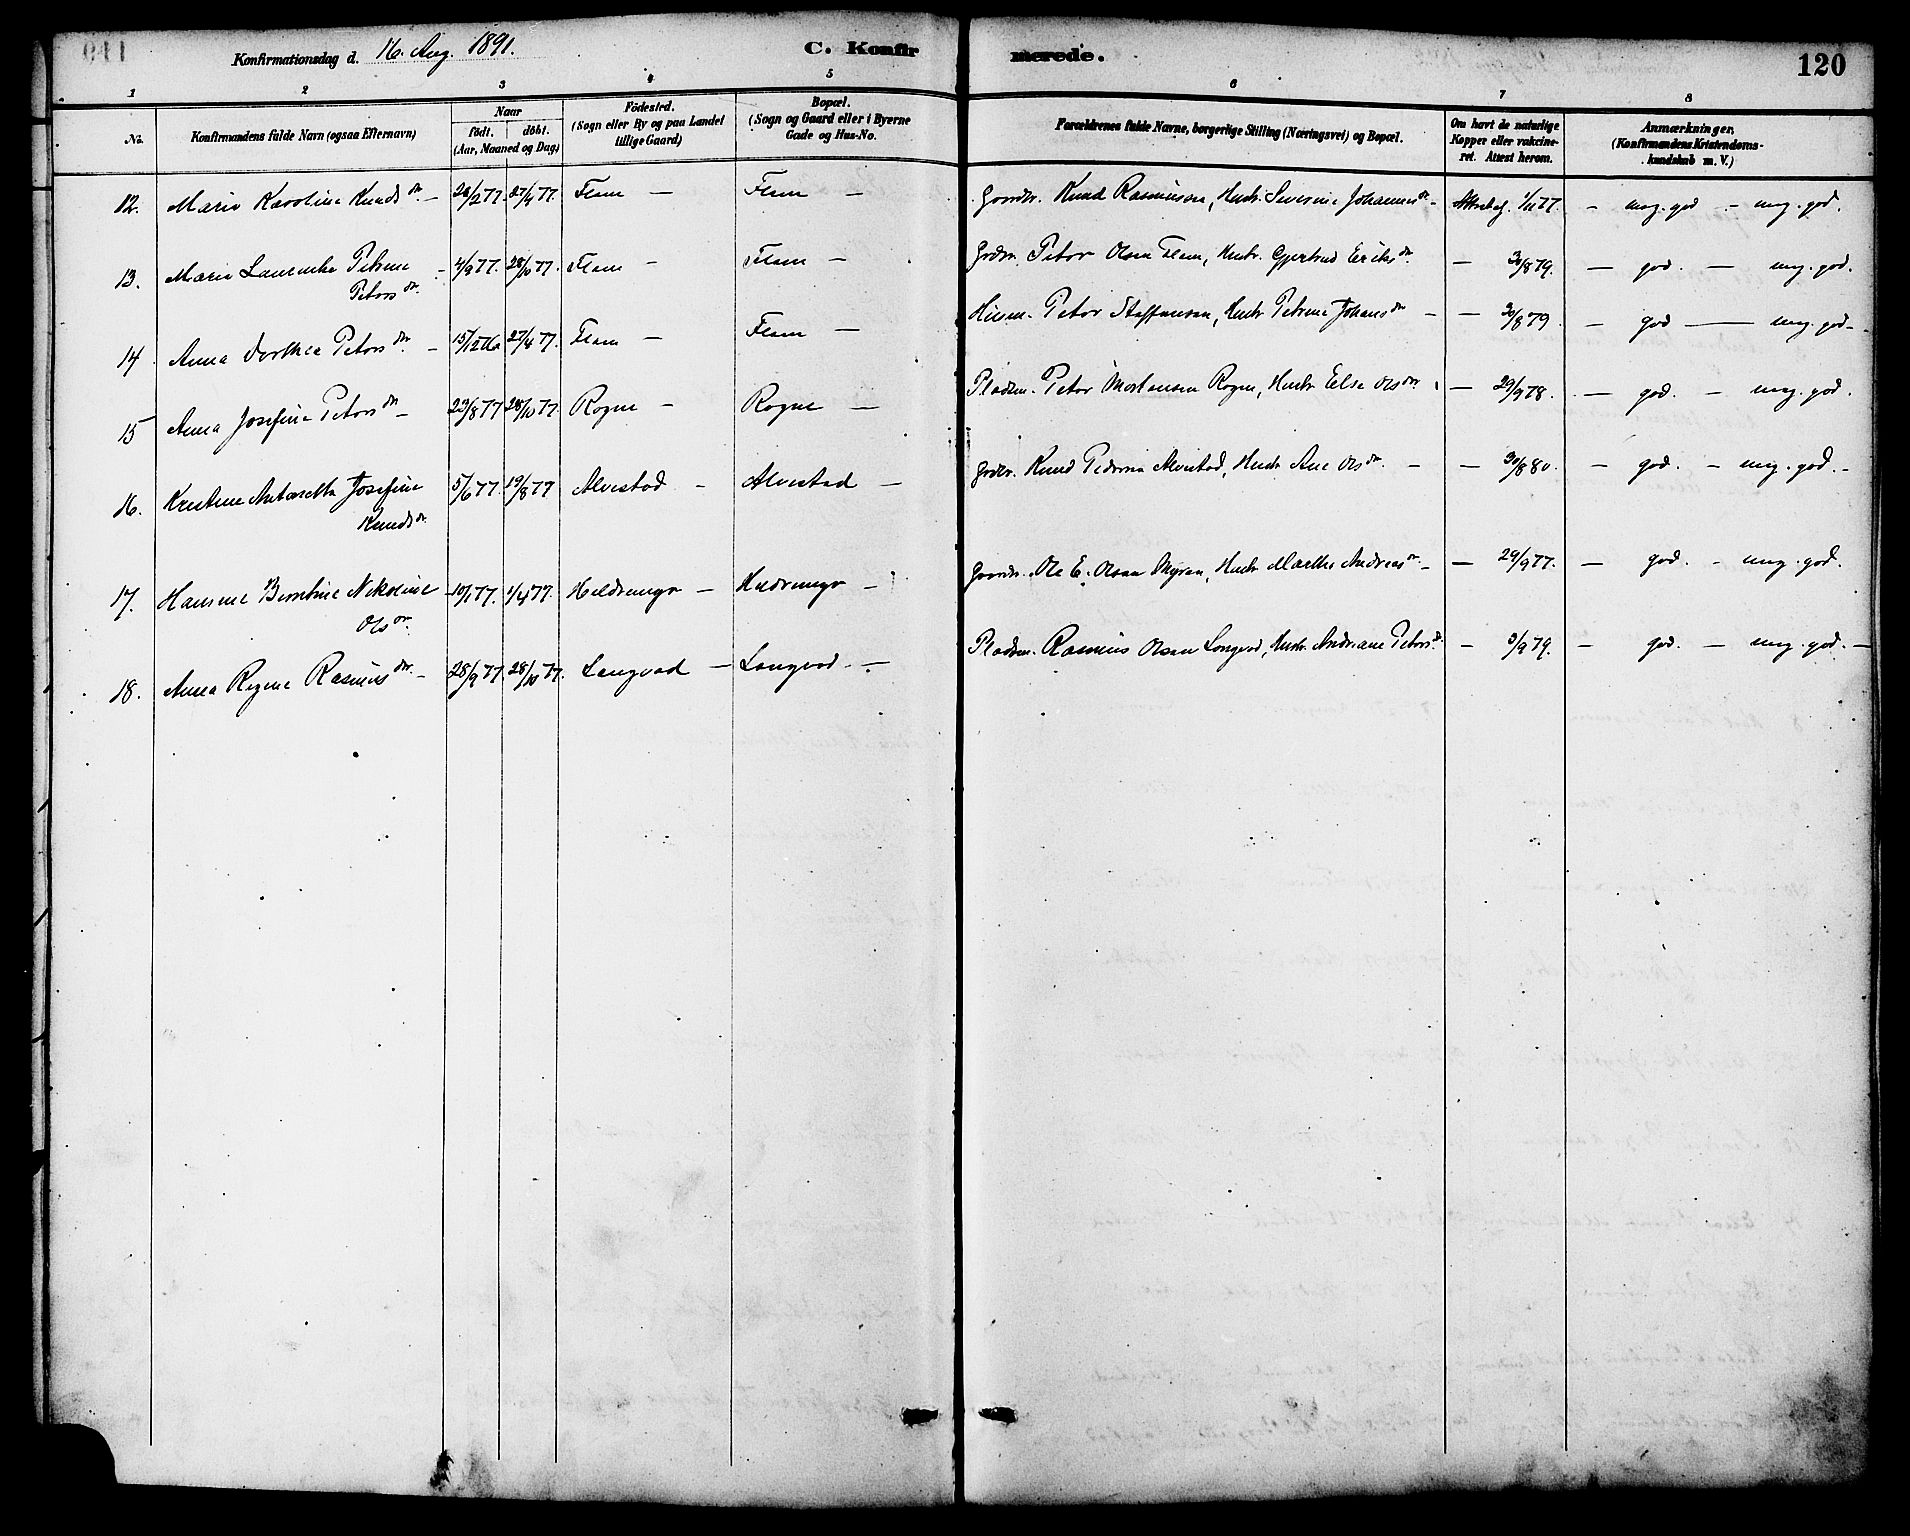 Konfirmationsdag d. 16. Aug. 1891. C. Konfirmerede. 120
1 2 3 4 5 6 7 8
No. Konfirmandens fulde Navn (ogsaa Efternavn) Naar födt. döbt. (Aar, Maaned og Dag) Födested. (Sogn eller By og paa Landet tillige Gaard) Bopæl. (Sogn og Gaard eller i Byerne Gade og Hus-No. Forældrenes fulde Navne, borgerlige Stilling (Næringsvei) og Bopæl. Om havt de naturlige Kopper eller vakcineret. Attest herom. Anmærkninger. (Konfirmandens Kristendomskundskab m. V.)
12. Marie Karoline Knudsdr. — 27/4 77. Flem — Flem — Gaardbr. Knud Rasmussen, Hustr. Severine Johannesdr. — 1/11 77. — meg. god — meg. god.
13. Marie Petrine Petersdr. — 4/9 77. 28/10 77. Flem — Flem — Grdbr. Peter Olsen Flem, Hustr. Gjertrud Eriksdr. — 30/8 79. — god. — meg. god.
14. Anna Dorthea Petersdr. — 15/12 76 27/4 77. Flem — Flem — Husm. Peter Staffensen, Hustr. Petrine Johansdr. — 30/8 79. — god — meg. god.
15 Anna Josefine Petersdr. — 23/8 77 28/10 77. Rogne — Rogne — Pladsm. Peter Mortensen Rogne, Hustr. Else Olsdr. — 29/9 78. — god. — meg. god.
16. Kristine Antonette Josefine Knudsdr. 5/6 77. 19/8 77 Alvestad — Alvestad — Grdbr. Knud Pedersen Alvestad, Hustr. Ane Olsdr. — 30/8 80. — god. — meg. god. —
17. Hansine Berntine Nikoline Olsdr. — 10/1 77. 1/4 77. Hildremyr — Hildremyr — Gaardbr. Ole E. Olsen Myren, Hustr. Marthe Andreasdr. — 29/9 77. — god. — meg. god.
18. Anna Regine Rasmusdr. — 28/9 77. 28/10 77. Longvad — Longvad — Pladsm. Rasmus Olsen Longvad, Hustr. Andriane Petersdr. — 9/9 79. — god. — meg. god. —